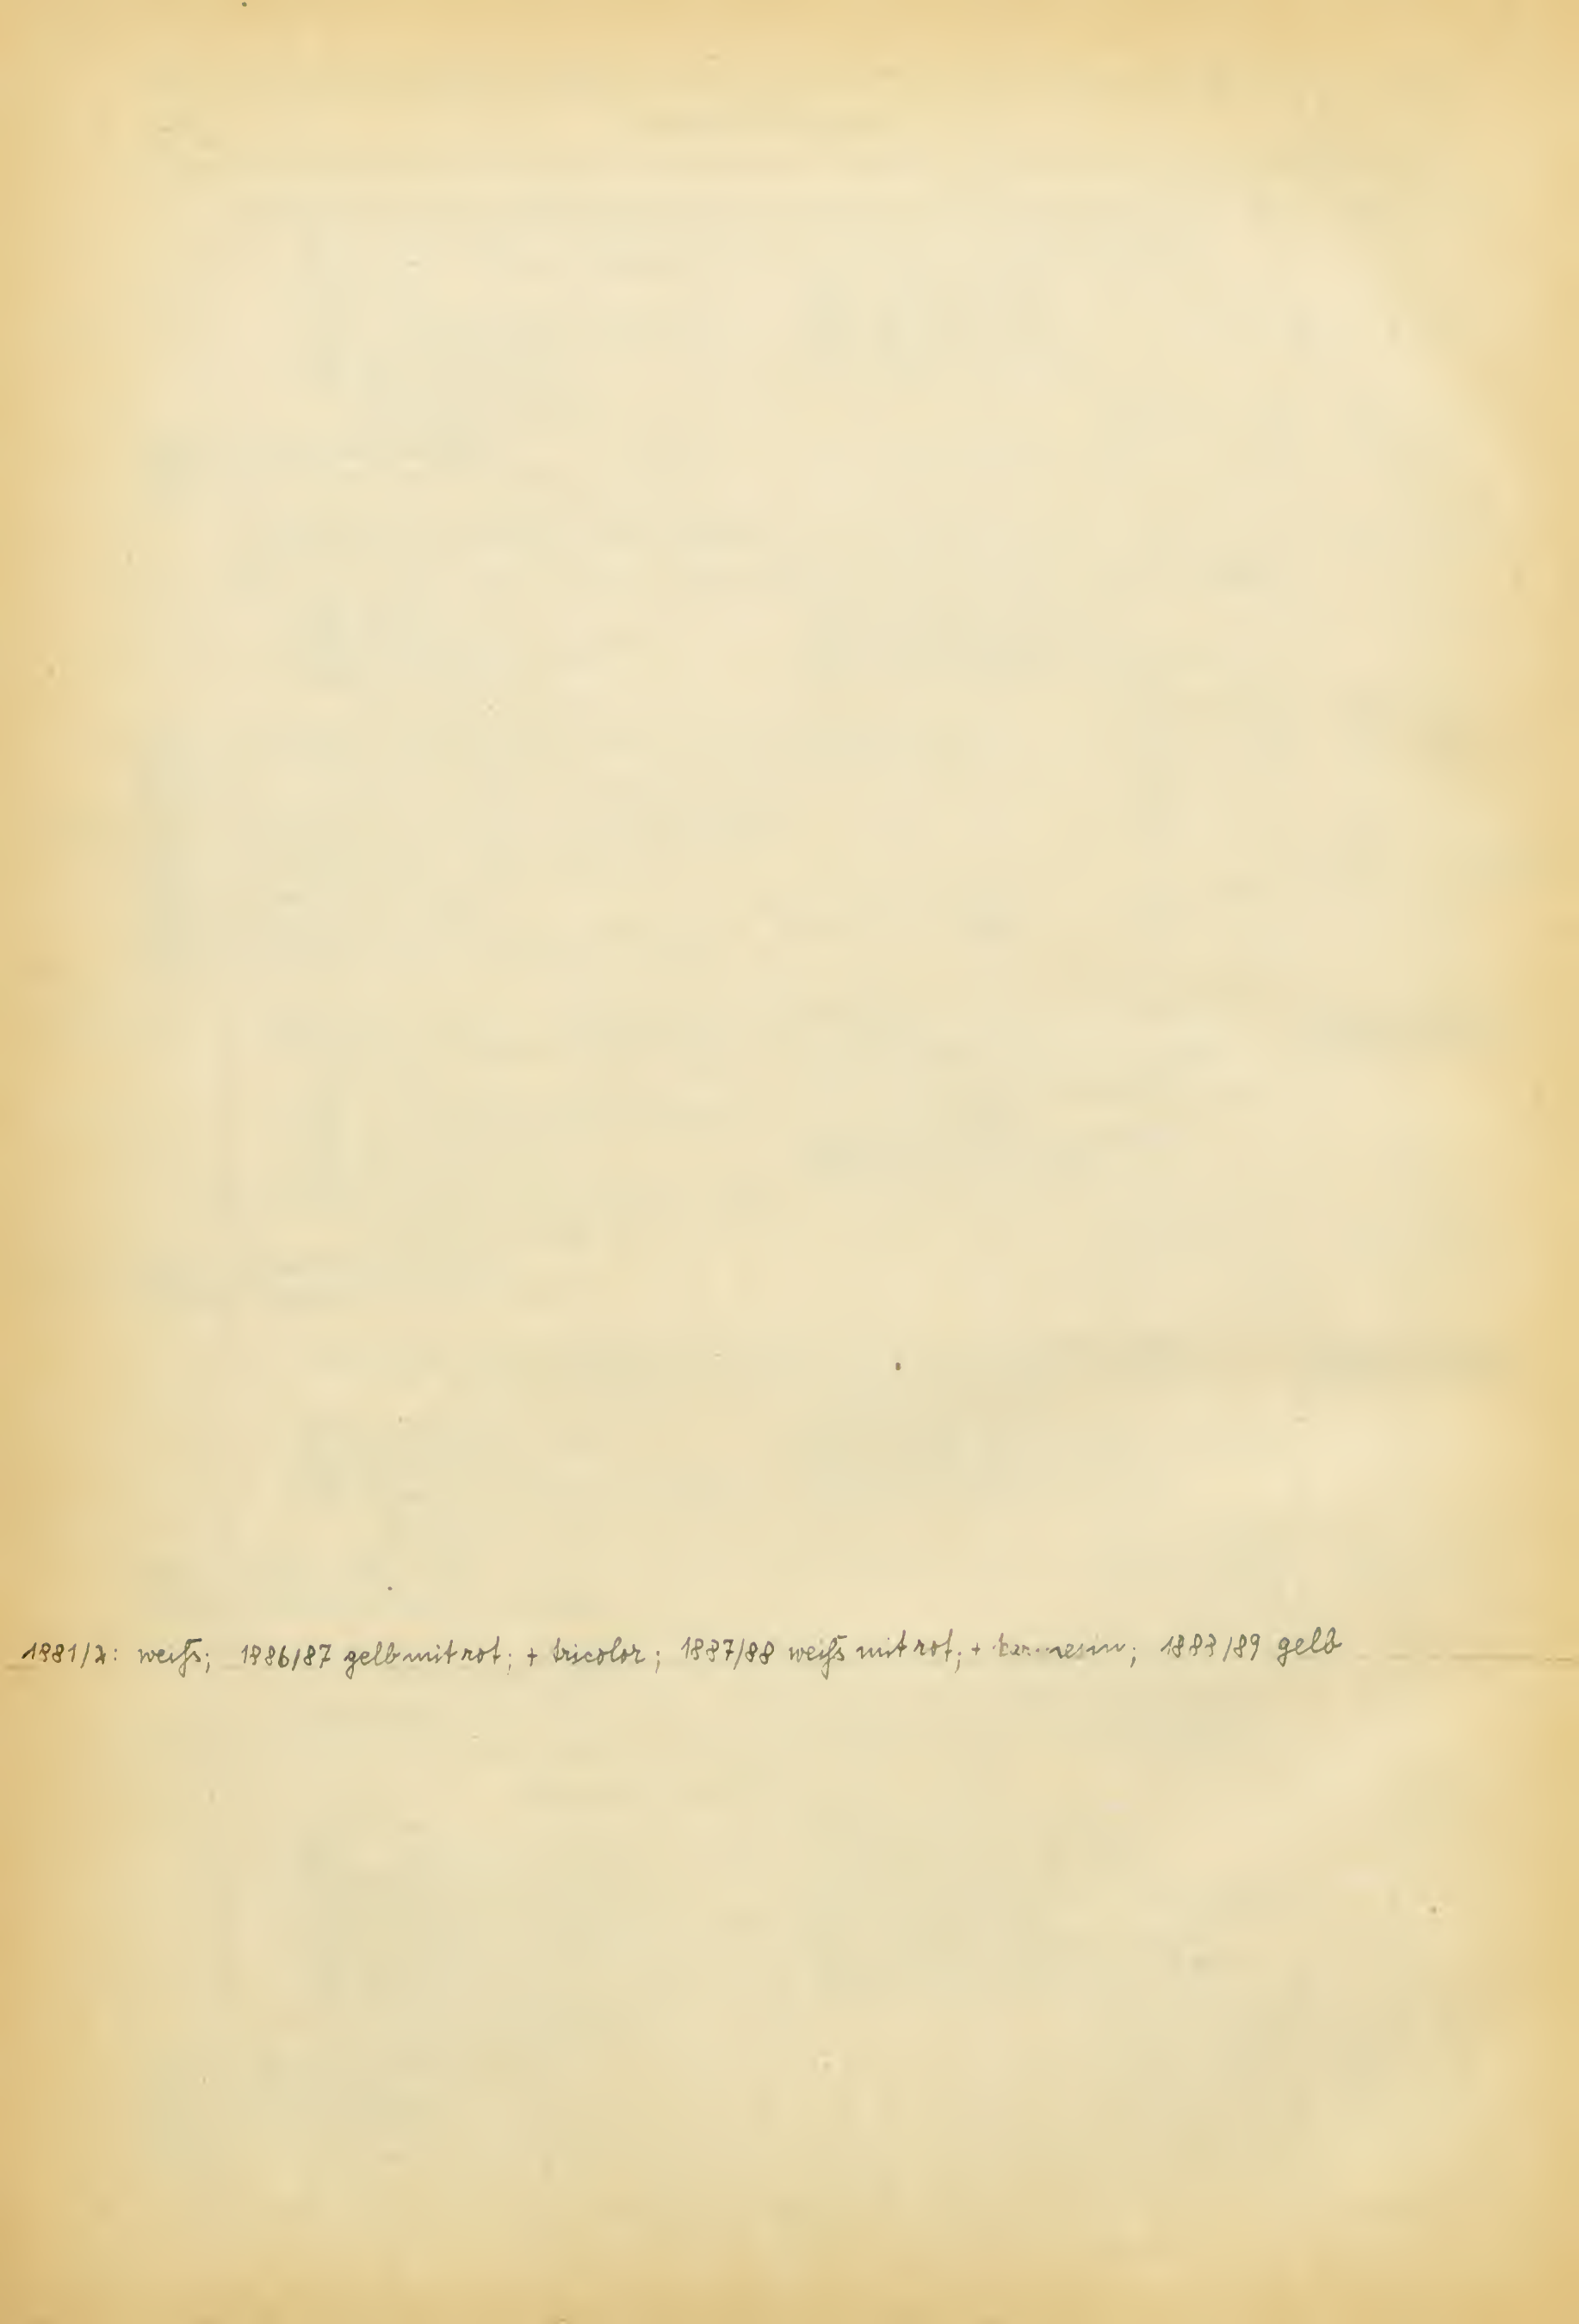 1881/2: weiß; 1886/87 gelb mit rot; + tricolor; 1887/88 weiß mit rot; + karmesin; 1888/89 gelb